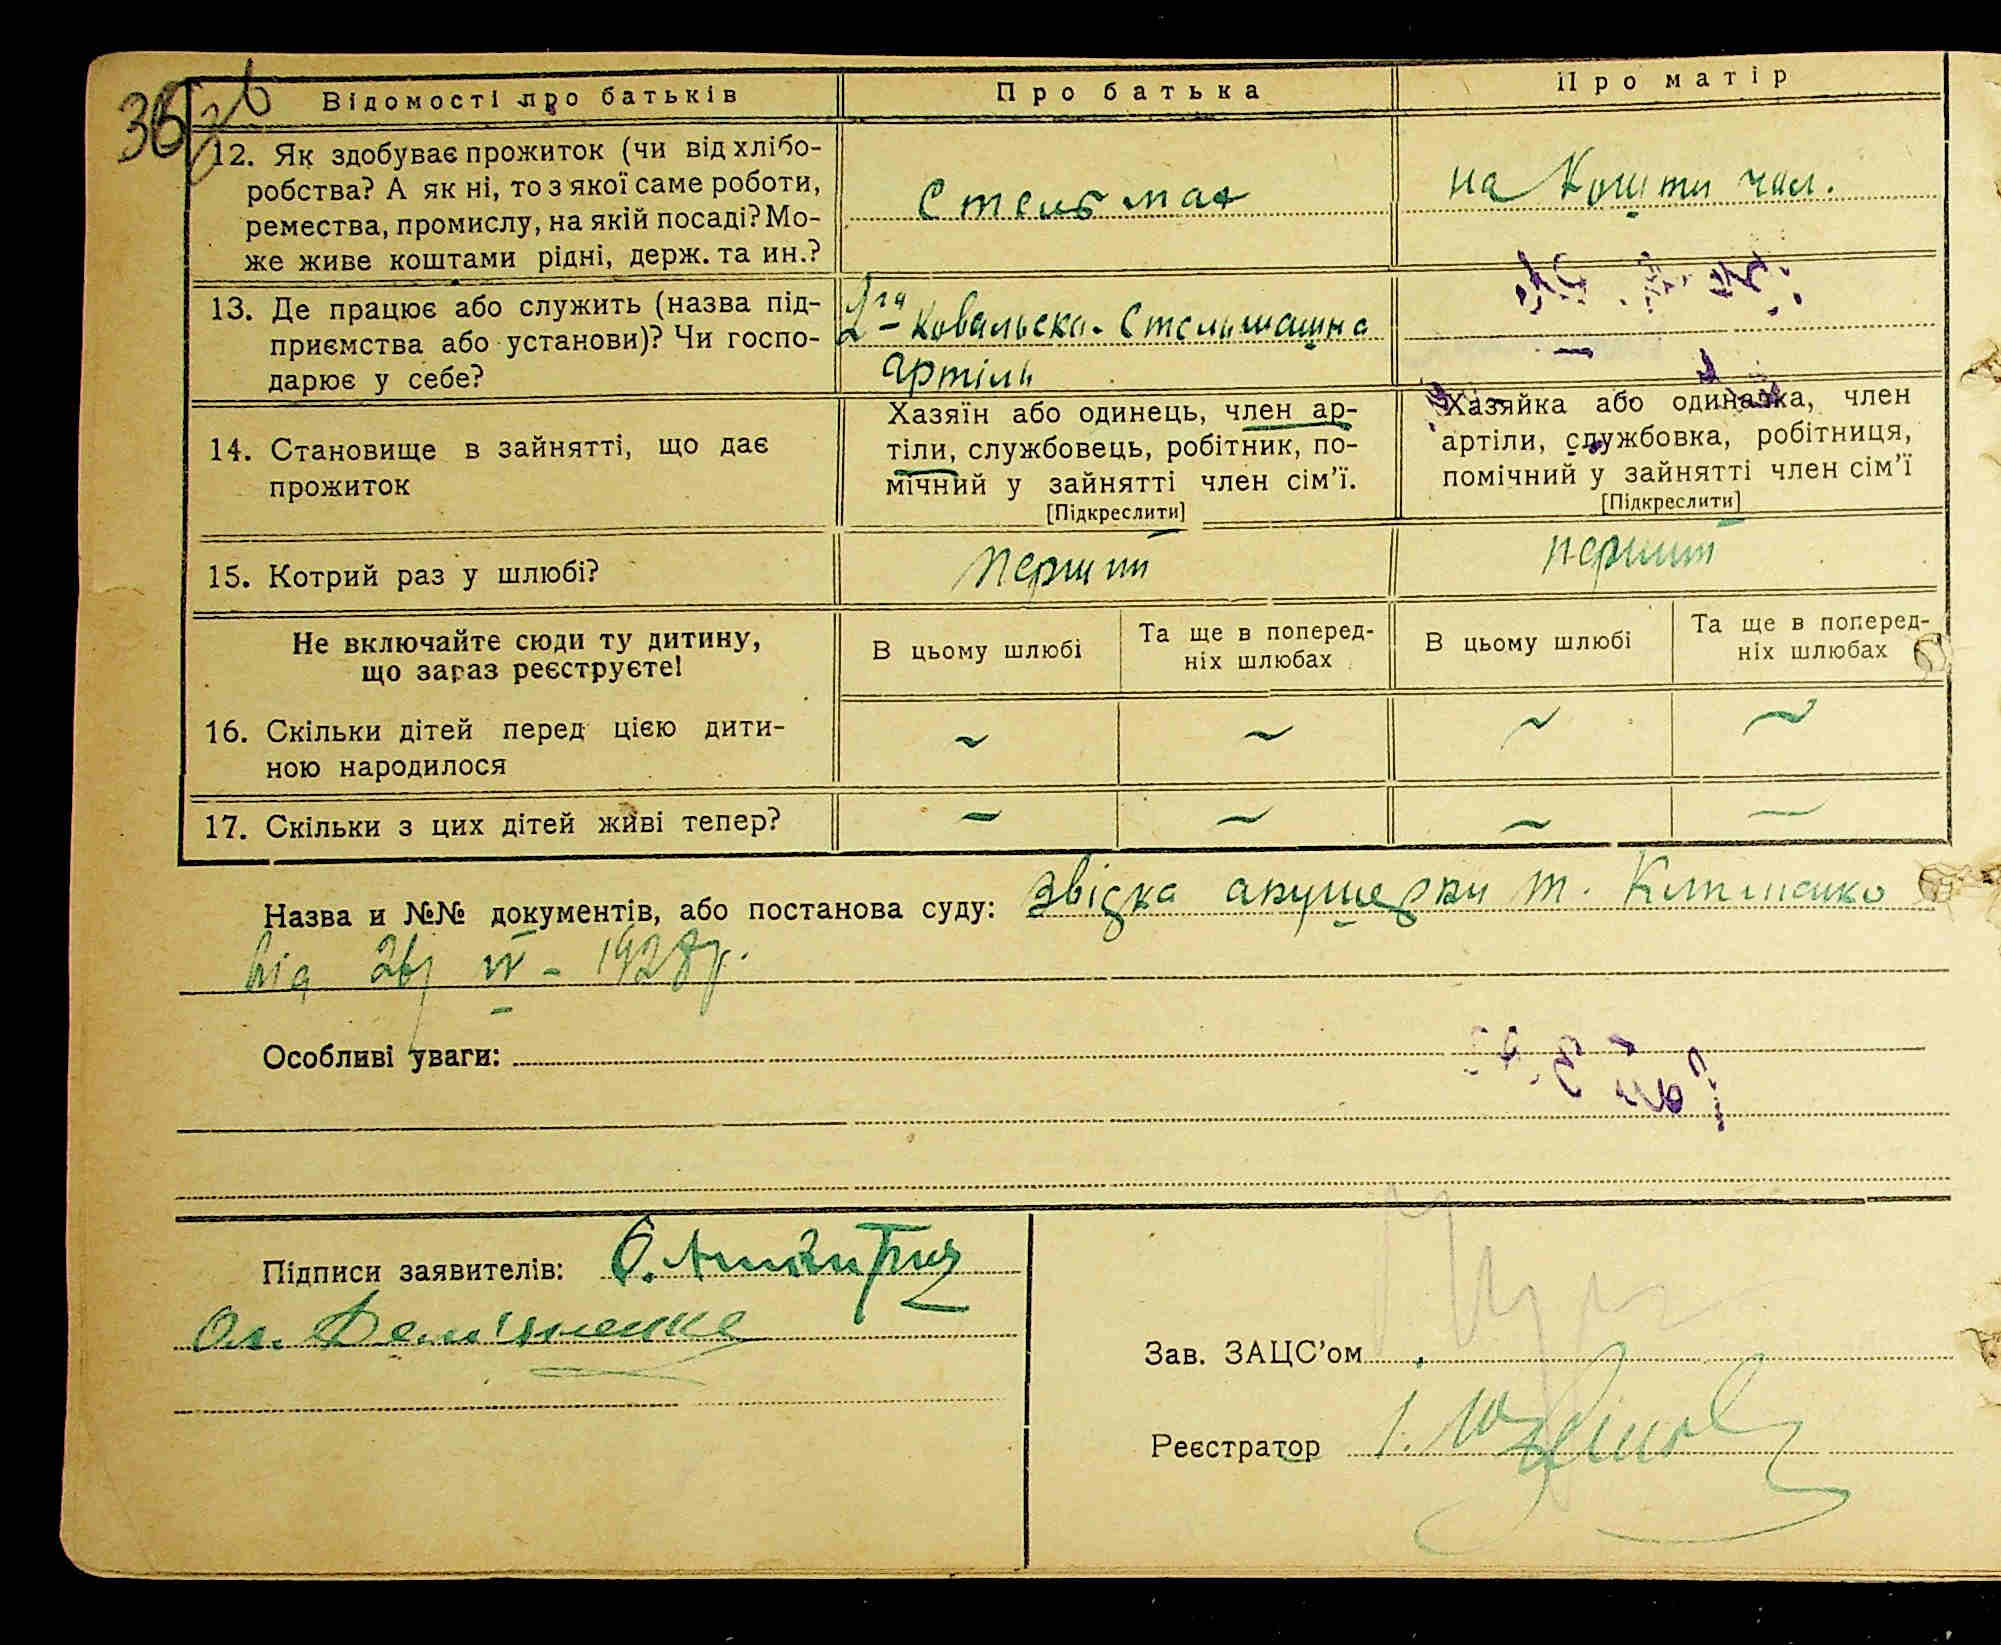 36 зв
Відомості про батьків
Про батька
Про матір
12. Як здобуває прожиток (чи від хлібо-
робства? А як ні, то з якої саме роботи,
ремества, промислу, на якій посаді? Мо-
же живе коштами рідні, держ. та ин.?
Стельмах
на кошти чол.
13. Де працює або служить (назва під-
приємства або установи)? Чи госпо-
дарює у себе?
2га Ковальско-Стельмашна
Артіль
14. Становище в зайнятті, що дає
прожиток
Хазяїн або одинець, член ар-
тіли, службовець, робітник, по-
мічний у зайнятті член сім’ї.
[Підкреслити]
Хазяйка або одиначка, член
артіли, службовка, робітниця,
помічний у зайнятті член сім’ї
[Підкреслити]
15. Котрий раз у шлюбі?
перший
перший
Не включайте сюди ту дитину,
що зараз реєструєте!
В цьому шлюбі
Та ще в поперед-
ніх шлюбах
В цьому шлюбі
Та ще в поперед-
ніх шлюбах
16. Скільки дітей перед цією дити-
ною народилося
~ ~ ~ ~
17. Скільки з цих дітей живі тепер?
~ ~ ~ ~
Назва и №№ документів, або постанова суду: Звідка акушерки т.
від 26/IV - 1928р.
Особливі уваги:
Підписи заявителів:
Ол. Дем'яненко
Зав. ЗАЦС’ом
Реєстратор І.